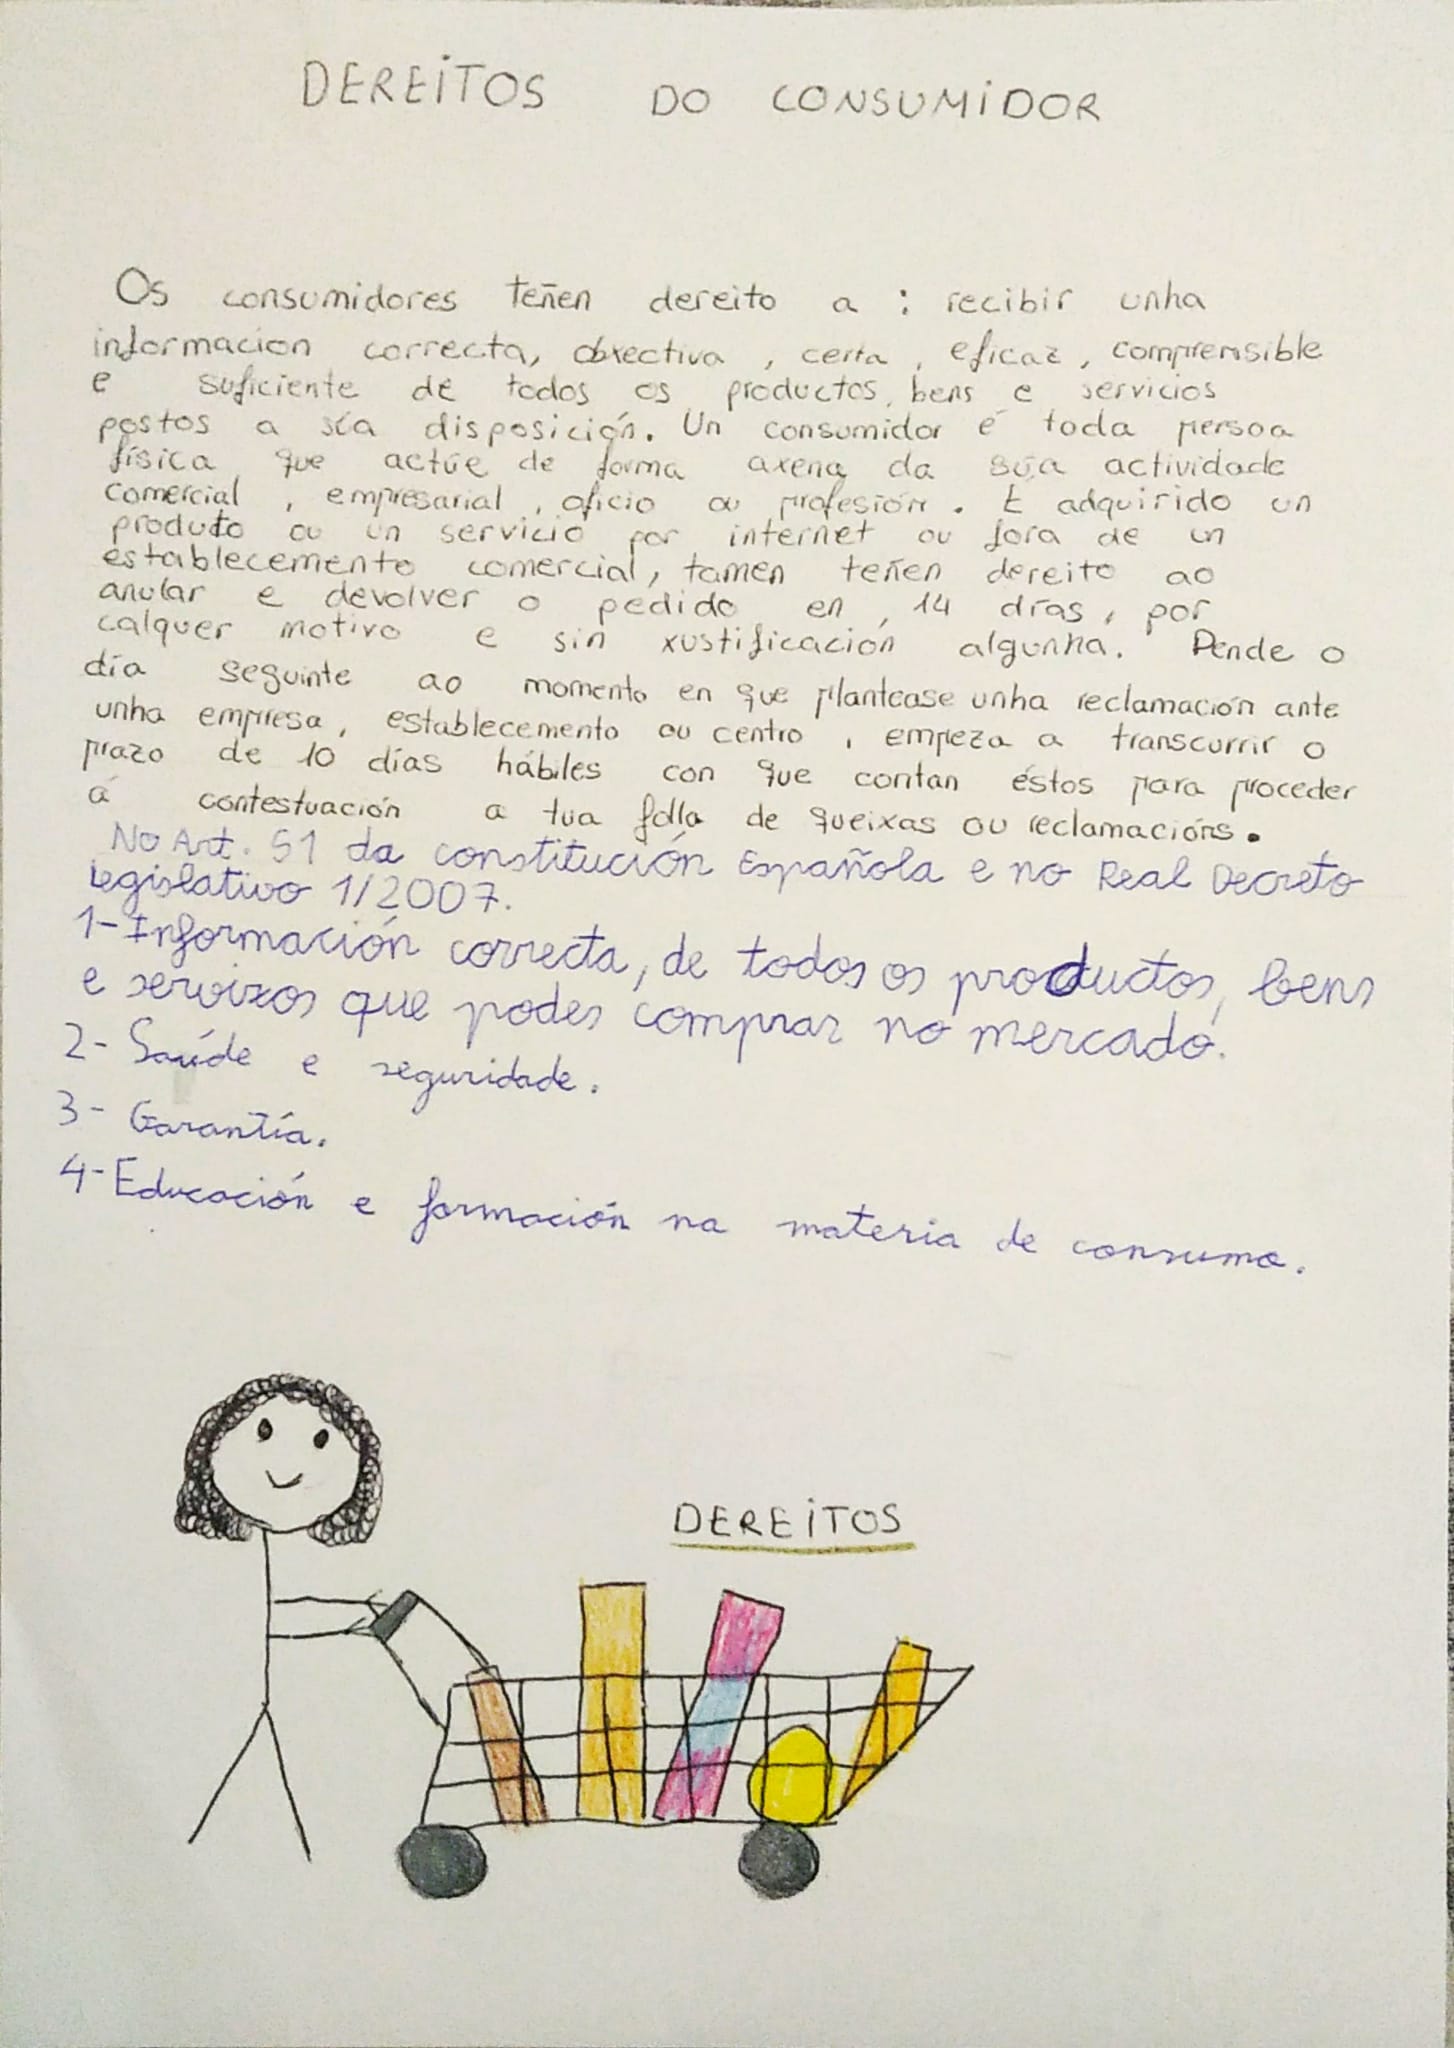 DEREITOS DO CONSUMIDOR
Os consumidores teñen dereito a : recibir unha
informacion correcta, obxectiva , certa , eficaz , comprensible
e suficiente de todos os productos, bens e servicios
postos a súa disposición. Un consumidor é toda persoa
física que actúe de forma axena da súa actividade
comercial , empresarial , oficio ou profesión . E adquirido un
produto ou un servicio por internet ou fora de un
establecemento comercial, tamen teñen dereito ao
anular e devolver o pedido en 14 días , por
calquer motivo e sin xustificación algunha. Dende o
día seguinte ao momento en que plantease unha reclamación ante
unha empresa, establecemento ou centro , empeza a transcurrir o
prazo de 10 días hábiles con que contan éstos para proceder
á contestuación a tua folla de queixas ou reclamacións.
No Art. 51 da constitución Española e no Real Decreto
Legislativo 1/2007.
1- Información correcta, de todos os productos, bens
e servizos que podes comprar no mercado.
2- Saúde e seguridade.
3- Garantía.
4- Educación e formación na materia de consumo.
DEREITOS